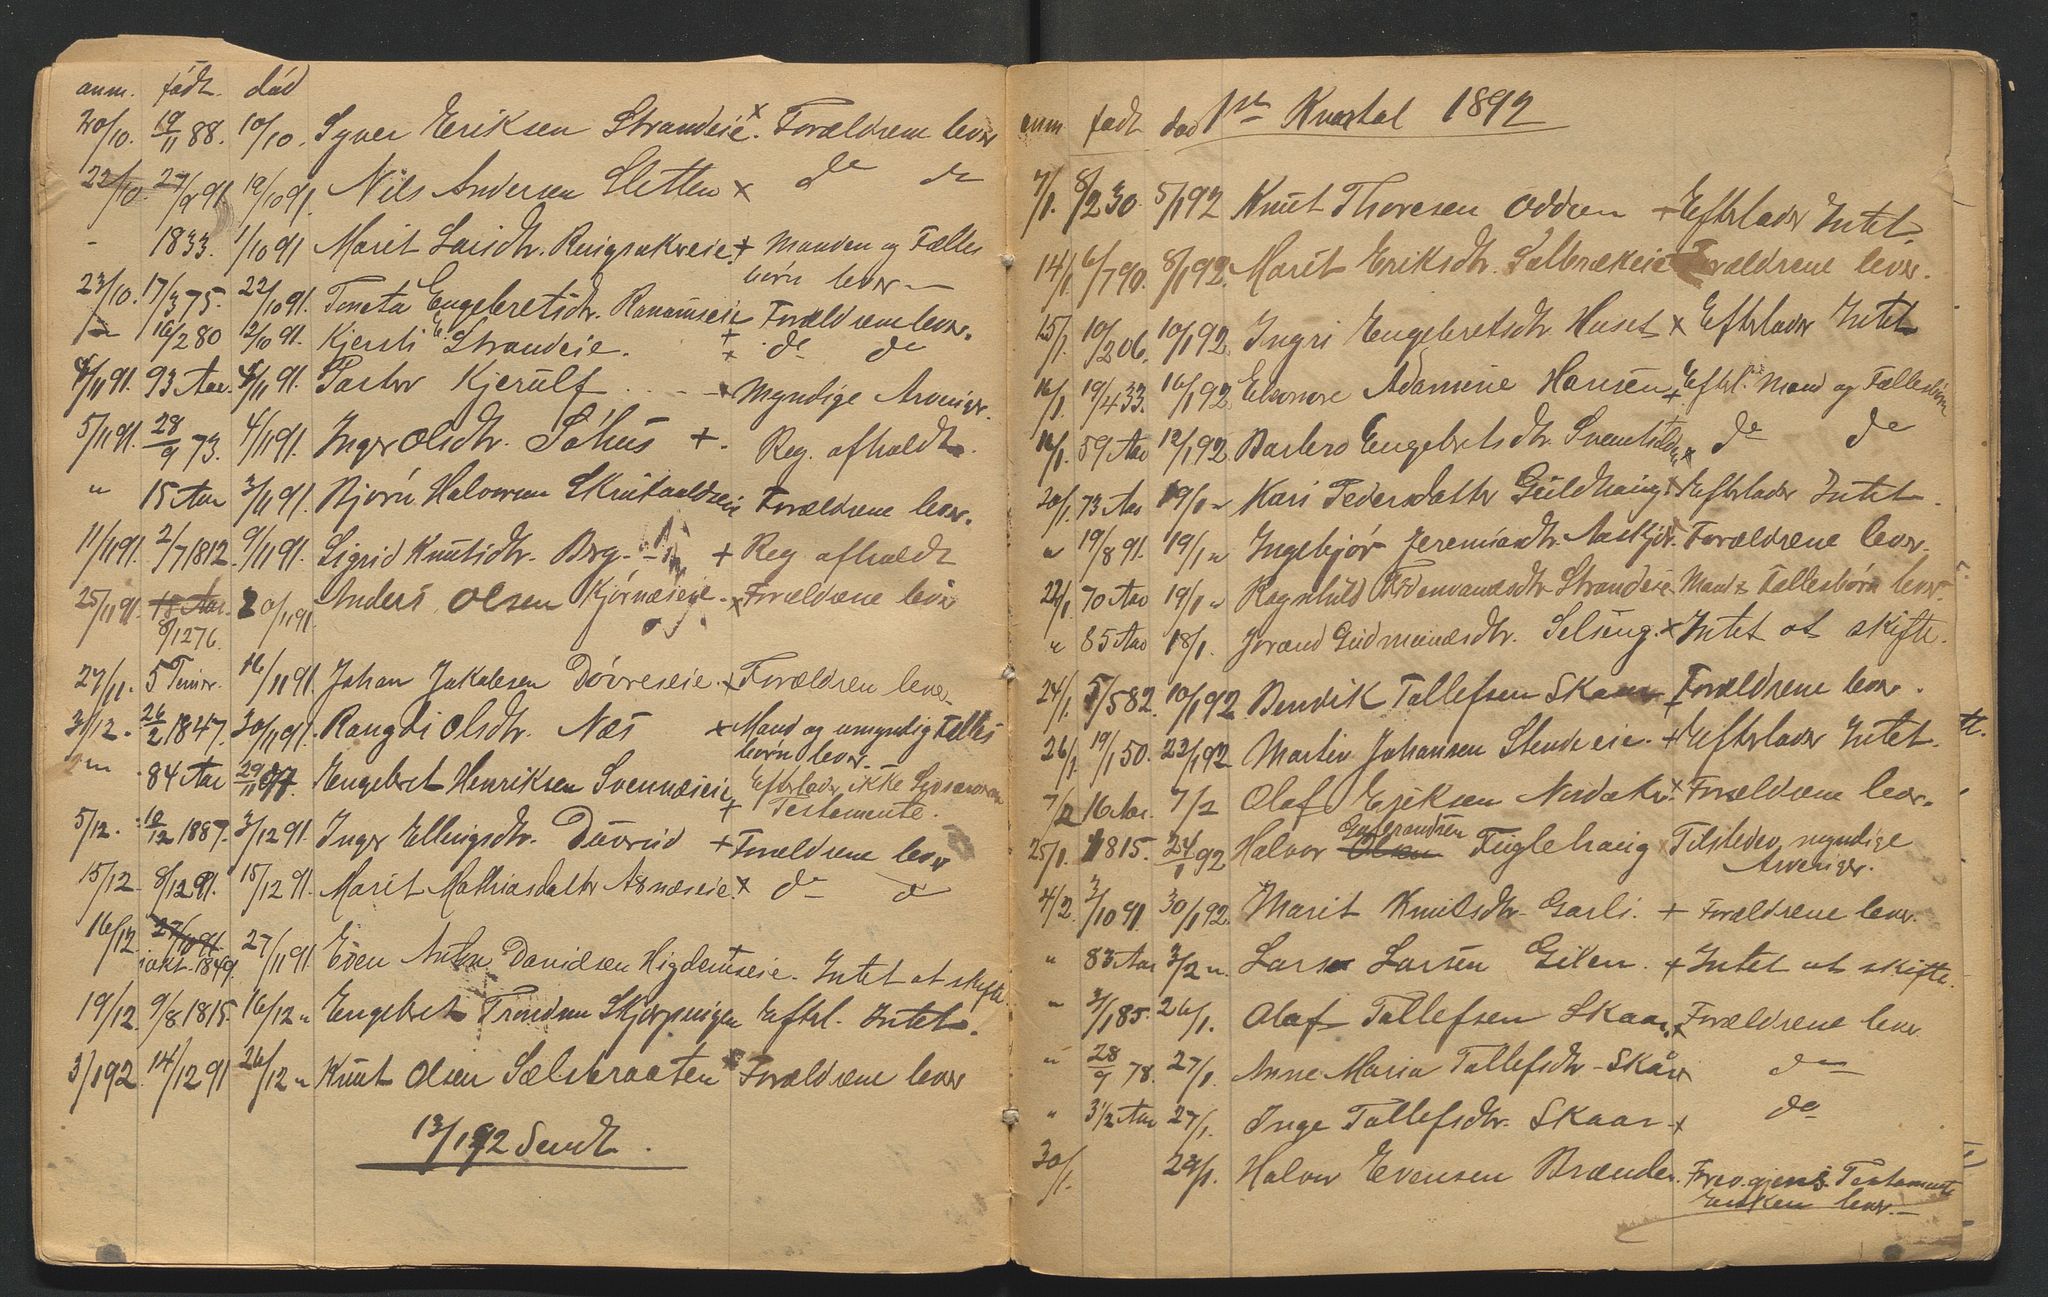 anm. født. død
20/10. 19/11 88. 10/10. Syver Eriksen Strandeie x. Forældrene lever
22/10. 27/9 91 19/10 91. Nils Andersen Sletten x do do
- 1833. 1/10 91 Marit Larsdtr. Ringsakreie. + Manden og Fælles
børn lever —
23/10. 17/3 75. 22/10 91. Toneta Engebretsdtr. Ranumseie Forældrene lever.
16/2 80 12/10 91. Kjersti E. Strandeie. + do do
4/11 91. 93 Aar. 4/11 91. Pastor Kjerulf . - - x Myndige Arvinger.
5/11 91. 28/9 73. 4/11 91. Inger Olsdtr. Sóhus +. Reg. afholdt.
" 15 Aar 3/11 91. Bjørn Halvorsen Forældrene lever.
11/11 91. 2/7 1812. 9/11 91. Sigrid Knutsdtr. Brg. + Reg afholdt
25/11 91. 18 Aar. 20/11 91. Anders Olsen Kjørnæseie. x Forældrene lever
8/12 76.
27/11. 5 Timer. 16/11 91. Johan Jakobsen Dóvreseie. x Forældren lever
3/12. 26/2 1847. 30/11 91. Rangdi Olsdtr. Næs x Mand og umyndig Fælles
børn lever.
" 84 Aar 29/11 Engebret Henriksen Svennæseie Efterlader ikke
+ Testamente.
5/12. 10/12 1887. 3/12 91. Inger Ellingsdtr. Dóvrud + Forældrene lever
15/12 8/12 91. 15/12 91. Marit Mathiasdatter Asnæseie x do do
16/12 27/10 91 27/11 91. Even Anton Davidsen Higdemseie. Intet at skifte.
i okt. 1849.
19/12 9/8 1815. 16/12 " Engebret Trondsen Skjærpingen Efterl. Intet.
3/1 92. 14/12 91 26/12 " Knut Olsen Sælsbraaten x Forældrene lever
13/1 92 Sendt.
anm født død 1ste Kvartal 1892
7/1. 8/2 30. 5/1 92 Knut Thoresen Odden + Efterlader Intet.
14/1 6/7 90. 8/1 92. Marit Eriksdtr. Sælbrækeie Forældrene lever.
15/1. 10/2 06. 10/1 92. Ingri Engebretsdtr. Huset x Efterlader Intet
16/1 19/4 33. 16/1 92. Elenore Adamine Hansen + Efterl. Mand og Fællesbørn
16/1. 59 Aar 12/1 92. Barbero Engebretsdtr. x do do
20/1. 73 Aar 19/1 " Kari Pedersdatter Guldhaug x Efterlader Intet.
" 19/8 91. 19/1 " Ingebjør Jeremiasdtr. Forældrene lever.
22/1 70 Aar 19/1 " Ragnhild Strandeie Mand & Fællesbørn lever.
" 85 Aar 18/1. Jorand Gudmundsdtr. Selseng. x Intet at skifte.
24/1. 5/5 82. 10/1 92 Bendik Tollefsen Skaar + Forældrene lever.
26/1. 19/1 50. 22/1 92 Martin Johansen Stendeie. + Efterlader Intet.
7/2 16 Aar. 7/2 Olaf Eriksen x Forældrene lever.
Gulbrandsen
25/1. 1815. 24/1 92 Halvor Olsen Fuglehaug x Tilsteder myndige
Arvinger.
4/2. 3/10 91. 30/1 92. Marit Knutsdtr. Garli. + Forældrene lever.
" 83 Aar 3/2 ". Lars Larsen Gilen. + Intet at skifte.
" 3/1 85. 26/1. Olaf Tollefsen Skaar x Forældrene lever
" 28/9 78. 27/1. Anne Maria Tollefsdtr. Skår do
" 3 1/2 Aar 27/1. Inge Tollefsdtr. Skaar x do
30/1. 29/1. Halvor Evensen Brænden. Testamente
Enken lever.—